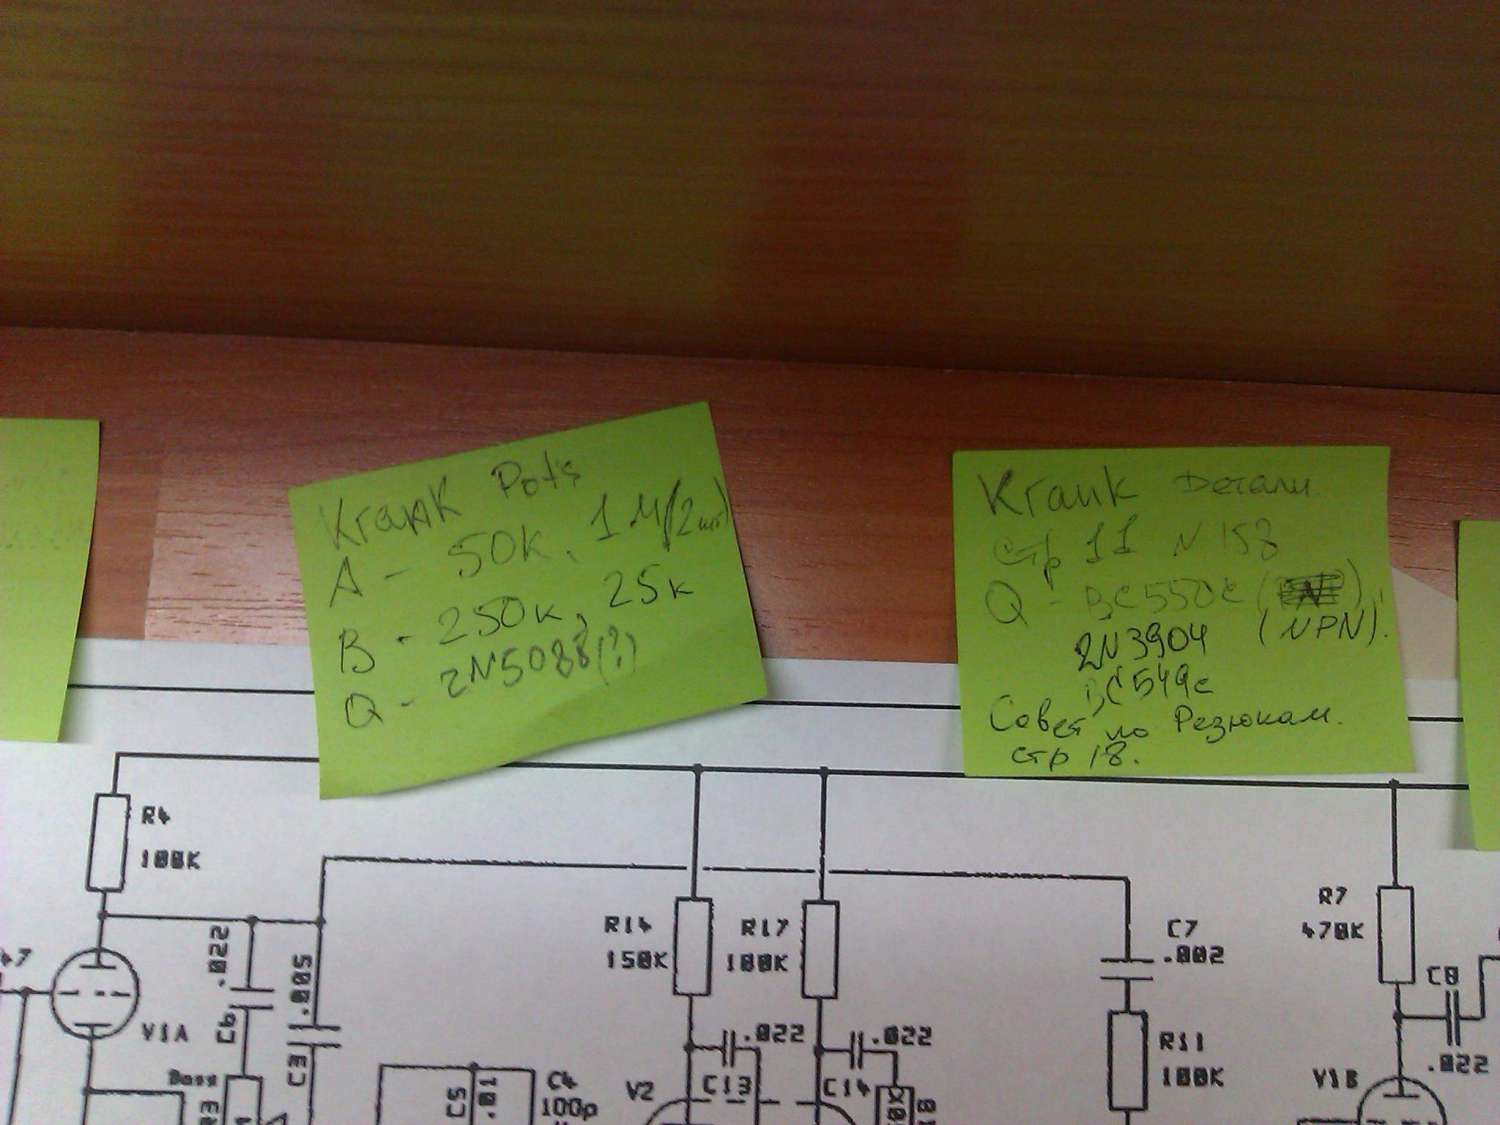 Krank Pots
A - 50K, 1M (2шт)
B - 250к, 25к
Q - 2N5088(?)
Krank Детали
стр 11 N158
Q - BC550C (N),
2N3904 (NPN).
BC549c
Совет по Резюкам.
стр 18.
R4
100K
47
V1A
.022
C6
.005
C3
Bass
R14
150K
R17
100K
C7
.002
R7
470K
C8
.022
R11
100K
V1B
V2
C13
.022
C14
.022
C5
.01
C4
100p